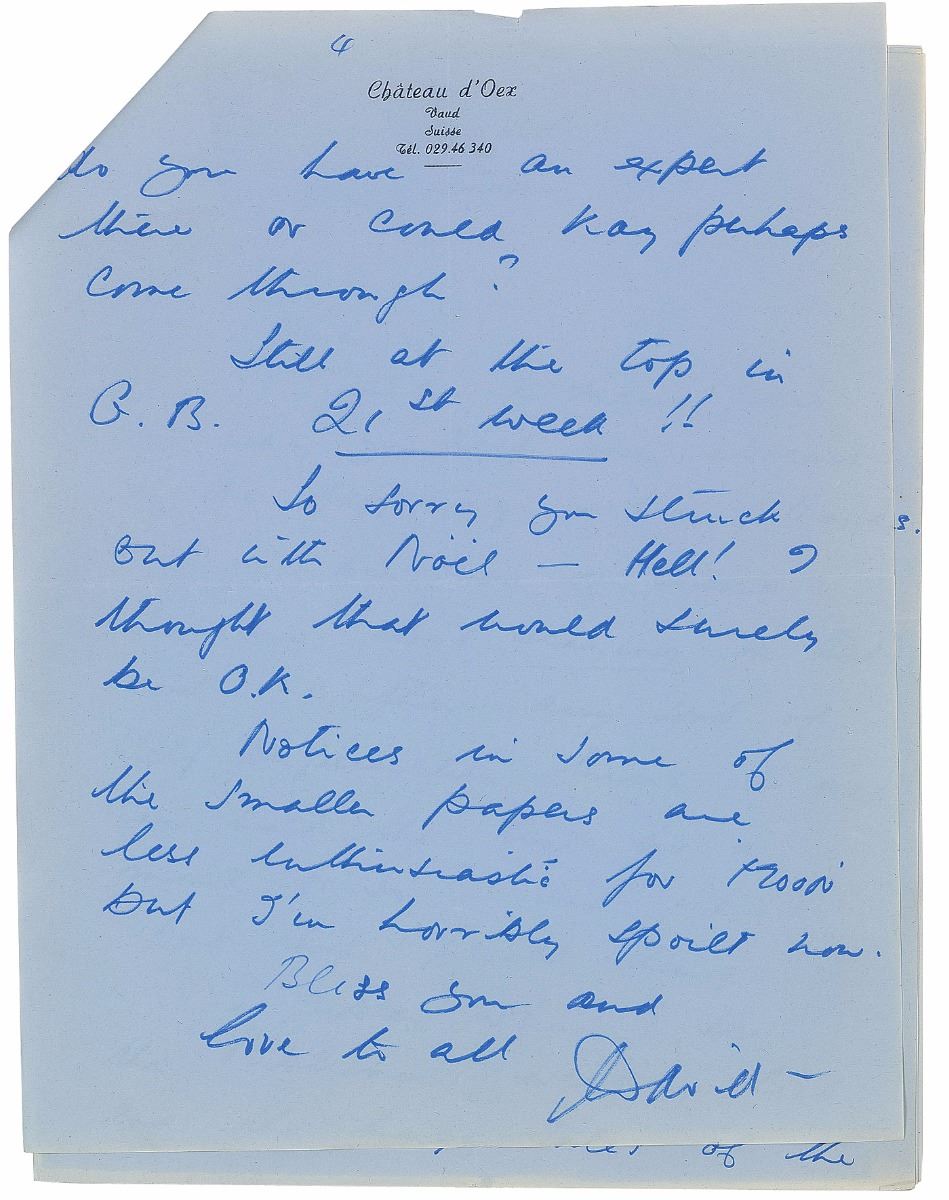 4
Château d'Oex
Vaud
Suisse
Tél. 029.46 340
do you have an expert
there or could Kay perhaps
come through?
Still at the top in
G. B. 21st week !!
So sorry you struck
out with Nöel — Hell! I
thought that would surely
be O.K.
Notices in some of
the smaller papers are
less enthusiastic for 'Moon'
but I'm horribly spoilt now.
Bless you and
love to all
David —
s.
of the